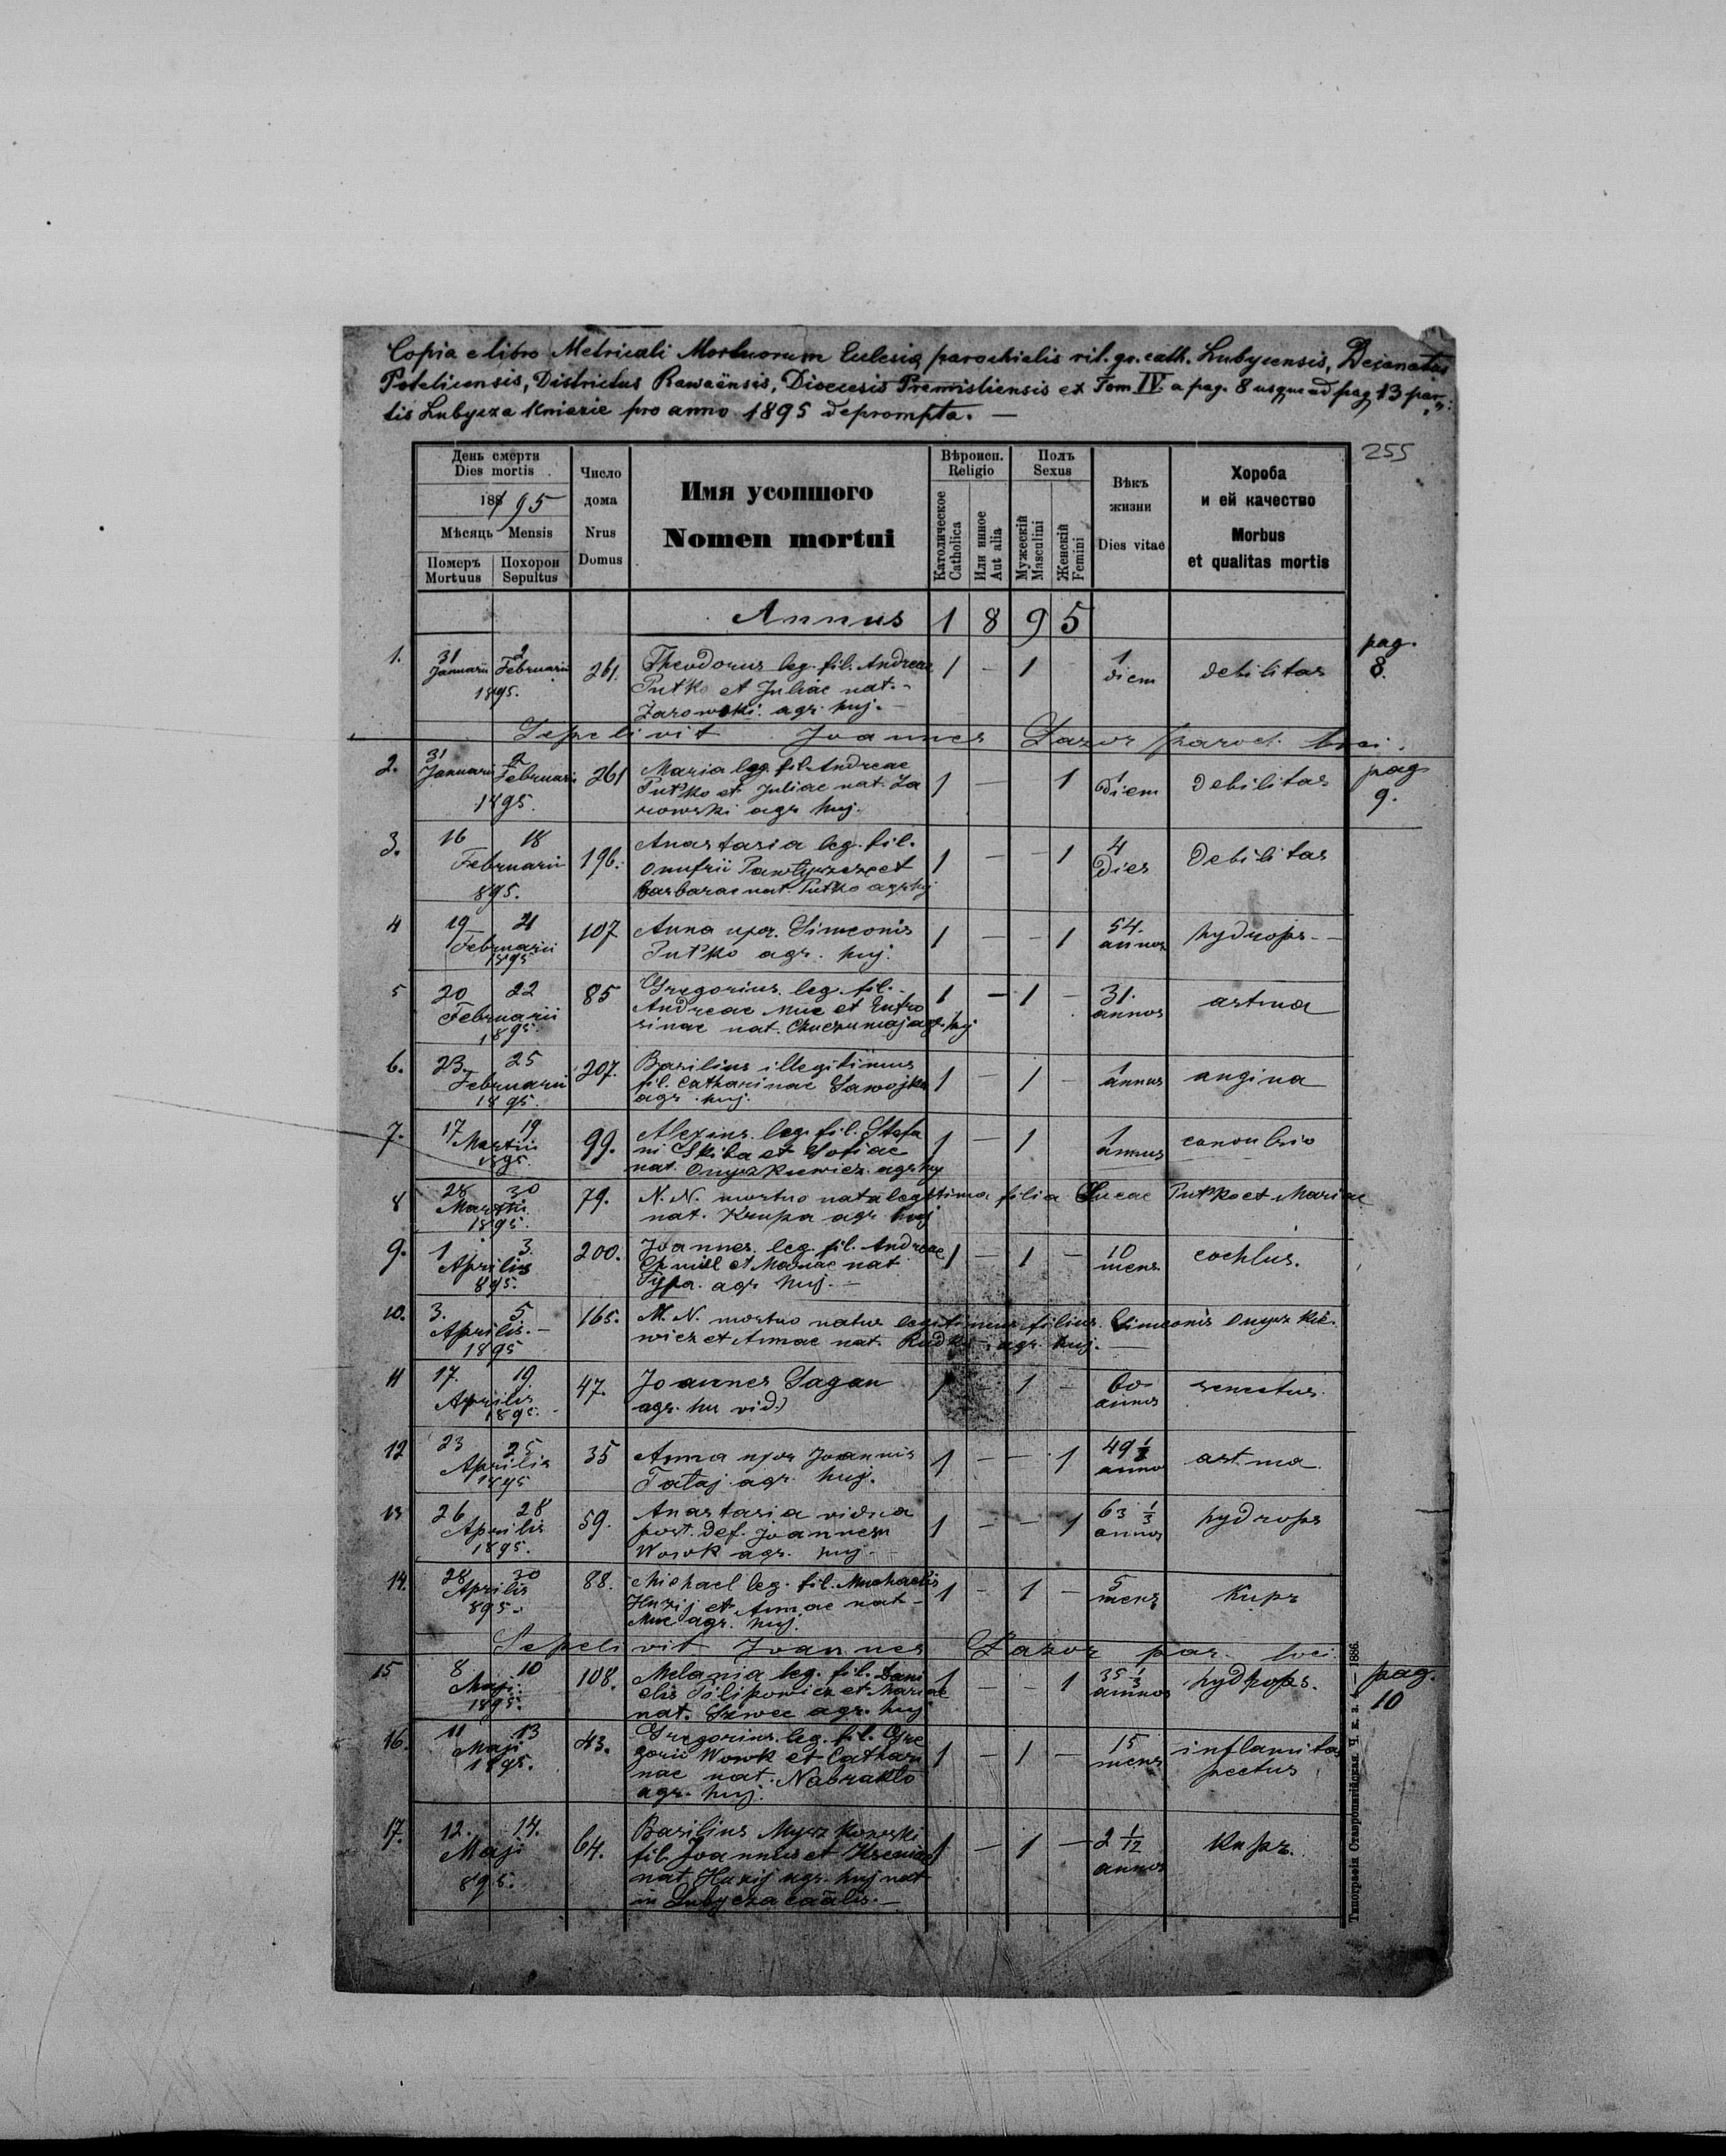 Copia e libro Metricali Mortuorum Eclesia parochialis rit. gr. cath. Lubycensis, Decanatus
Potelicensis, Districtus Rawaënsis, Diocesis Premisliensis ex Tom IV. a pag. 8 usque ad pag 13 par„
tis Lubycza Kniazie pro anno 1895 deprompta. —
255
День смерти
Dies mortis
188/95
Мѣсяць Mensis
Померъ
Mortuus
Похорон
Sepultus
Число
дома
Nrus
Domus
Имя усопшого
Nomen mortui
Вѣроисп.
Religio
Католическое
Catholica
Или инное
Aut alia
Полъ
Sexus
Мужескій
Masculini
Женскій
Femini
Вѣкъ
жизни
Dies vitae
Хороба
и ей качество
Morbus
et qualitas mortis
Annus 1 8 9 5
pag.
8.
1. 31 Januarii 2 Februarii 1895. 261. Theodorus leg. fil. Andreae 1 – 1 1 diem debilitas
Putko et Juliae nat. -
Zarowski. agr. huj. —
Sepelivit Joannes Lazor paroch. loci.
pag
9.
2. 31 Januarii 2 Februarii 1895. 261 Maria leg. fil. Andreae 1 — 1 1 diem Debilitas
Putko et Juliae nat. Za
rowski agr. huj.
3. 16 18 Februarii 895. 196. Anastasia leg. fil. 1 – – 1 4 Dies Debilitas
Onufrii et
barbarae nat. Putko agr huj
4 19 21 Februarii 1895 107 Anna uxor. Simeonis 1 – – 1 54. annos hydrops - -
Putko agr. huj.
5 20 22 Februarii 1895. 85 Gregorius. leg. fil. - 1 – 1 – 31. annos astma
Andreae Muc et Eufro
sinae nat. agr. huj
6. 23. 25 Februarii 1895. 207. Basilius illegitimus 1 – 1 – 1 annus angina
fil. Catharinae Sawojka
agr. huj.
7. 17 19 Martii 1895. 99. Alexius. leg. fil. Stefa 1 – 1 1 annus
ni Skiba et Sofiae
nat. Onyszkiewicz. agr huj
8 28 30 Martii 1895. 79. N. N. mortuo nata legitima filia Lucae Putko et Mariae
nat. Krupa agr huj
9. 1 3. Aprilis 895. 200. Joannes. leg. fil. Andreae 1 – 1 – 10 mens cochlus.
et Mariae nat
agr huj. —
10. 3. 5 Aprilis. — 1895 165. N. N. mortuo natus legitimus filius. Simeonis Onyszkie-
wicz et Annae nat. agr. huj. —
11 17. 19. Aprilis 1895. 47. Joannes Sagan 1 – 1 – 60 annos senectus.
agr. hu vid.)
12 23 25 Aprilis 1895 35 Anna uxor Joannis 1 – – 1 49 ½ annos astma.
Tataj. agr. huj.
13 26 28 Aprilis 1895. 59. Anastasia vidua 1 – – 1 63 1/3 annos hydrops
post. def. Joannem
Wowk agr. huj. —
14. 28 30 Aprilis 895. 88. Michael leg. fil. Michaelis 1 – 1 – 5 mens Kupr
Huzij et Annae nat -
Muc agr. huj.
Sepelivit Joannes Lazor par. loci
pag.
10
15 8 10 Maji. 1895. 108. Melania leg. fil. Dani 1 – – 1 35 1/3 annos hydrops.
elis Pilipowicz et Mariae
nat. Szwec agr. huj
16. 11 13 Maji 1895. 43. Gregorius. leg. fil. Gre 1 – 1 – 15 mens
gorii Wowk et Cathari pectus
nae nat. Nabrakto
agr. huj.
17. 12. 14. Maji 895. 64. Basilius Myszkowski 1 – 1 – 2 1/12 annos Kupr.
fil. Joannis et Kseniae
nat. Huzij agr. huj nat
in Lubycza
Типографія Ставропигійская. Ч. к. з. 4 — 1886.